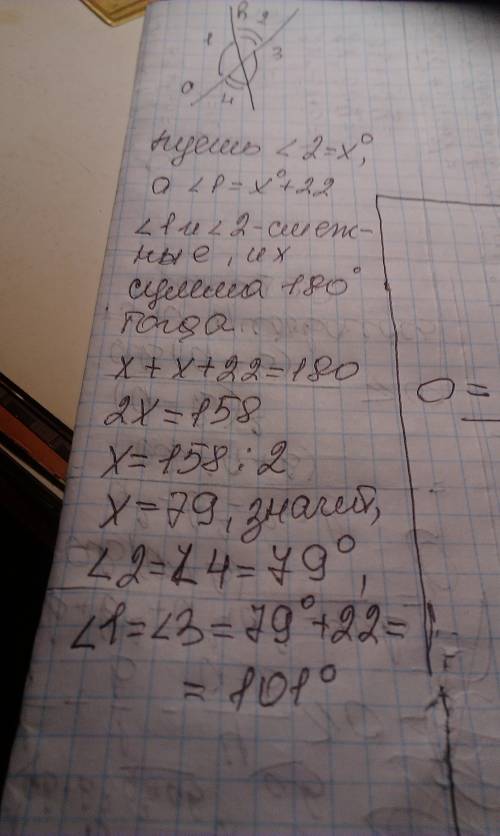 в 2
1 3
о
4
пусть ∠2=x°,
а ∠1=x°+22
∠1 и ∠2-смеж-
ные, их
сумма 180°
тогда
x+x+22=180
2x=158
x=158:2
x=79, значит,
∠2=∠4=79°,
∠1=∠3=79°+22=
=101°
O=